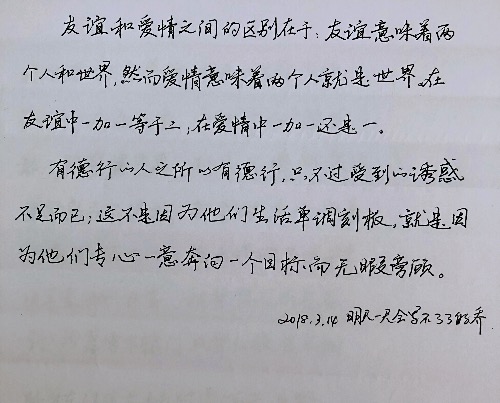 友谊和爱情之间的区别在于：友谊意味着两
个人和世界，然而爱情意味着两个人就是世界。在
友谊中一加一等于二；在爱情中一加一还是一。
有德行的人之所以有德行，只不过受到的诱惑
不足而已；这不是因为他们生活单调刻板，就是因
为他们专心一意奔向一个目标而无暇旁顾。
2018.3.14 明天一天会写不了了